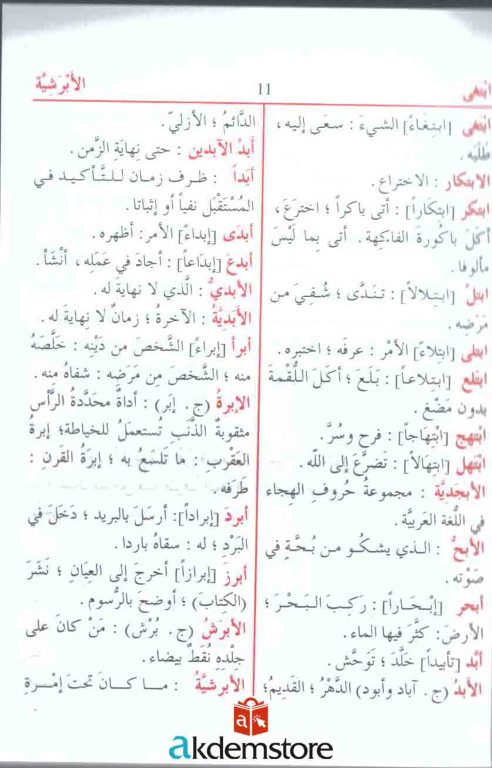 ابتغى
11
الأبرشيّة
ابتغى [ابتغاءً] الشيءَ : سعَى إليه،
طلَبَه.
الابتكار : الاختراع.
ابتكر [ابتكاراً] : أتى باكراً ؛ اخترعَ،
أكلَ باكُورةَ الفاكِهة. أتى بِما ليْسَ
مألوفا.
ابتلّ [ابتِلالاً] : تنَدَّى ؛ شُفِيَ من
مَرَضِه.
ابتلى [ابتِلاءً] الأمْرَ : عرفَه ؛ اختبره.
ابتلع [ابتِلاعاً] : بَلَعَ ؛ أكلَ اللُّقْمةَ
بدون مَضْغ.
ابتهج [ابْتِهاجاً] : فرح وسُرَّ.
ابتهل [ابتِهالاً] : تَضَرَّعَ إلى اللّه.
الأبجديّة : مجموعةُ حُروفِ الهِجاء
في اللُّغة العَربيَّة.
الأبحُّ : الذي يشكُو من بُحَّةٍ في
صَوْتِه.
أبحر [إبْحَاراً] : رَكِبَ البَحْرَ ؛
الأرضَ: كثُرَ فيها الماء.
أبّد [تأبيداً] خلَّدَ ؛ تَوَحَّش.
الأبدُ (ج . آباد وأبود) الدَّهْرُ ؛ القَديمُ؛
الدَّائمُ ؛ الأزليّ.
أبدُ الآبدين : حتى نِهايَةِ الزَّمن.
أبداً : ظرف زمان للتَّأكيد في
المُسْتَقْبَل نفياً أو إثباتا.
أبدَى [إبداءً] الأمرَ: أظهره.
أبدعَ [إبدَاعاً] : أجادَ في عَمَلِه ، أنْشأَ.
الأبديُّ : الَّذي لا نهايةَ له.
الأبَديَّةُ : الآخرةُ ؛ زمانٌ لا نِهايةَ له.
أبرأ [إبراءً] الشَّخصَ من دَيْنِه : خلَّصَهُ
منه ؛ الشَّخصَ مِن مَرَضِه : شفاهُ منه.
الإبرةُ (ج. إبَر) : أداةٌ محَدَّدةُ الرَّأس
مثقوبةُ الذَّنَبِ تُستعملُ للخياطة؛ إبرةُ
العَقْربِ : ما تلسَعُ به ؛ إبرَةُ القَرن :
طَرَفه.
أبردَ [إبراداً]: أرسلَ بالبريد ؛ دَخلَ في
البَرْد ؛ له : سقاهُ باردا.
أبرزَ [إبرازاً] أخرجَ إلى العِيَان ؛ نَشَرَ
(الكتابَ) ؛ أوضحَ بالرُّسوم.
الأبرشُ (ج . بُرْش) : مَنْ كانَ على
جلْدِه نُقَطٌ بيضاء.
الأبرشيَّةُ : ما كانَ تحتَ إمْرةِ
akdemstore